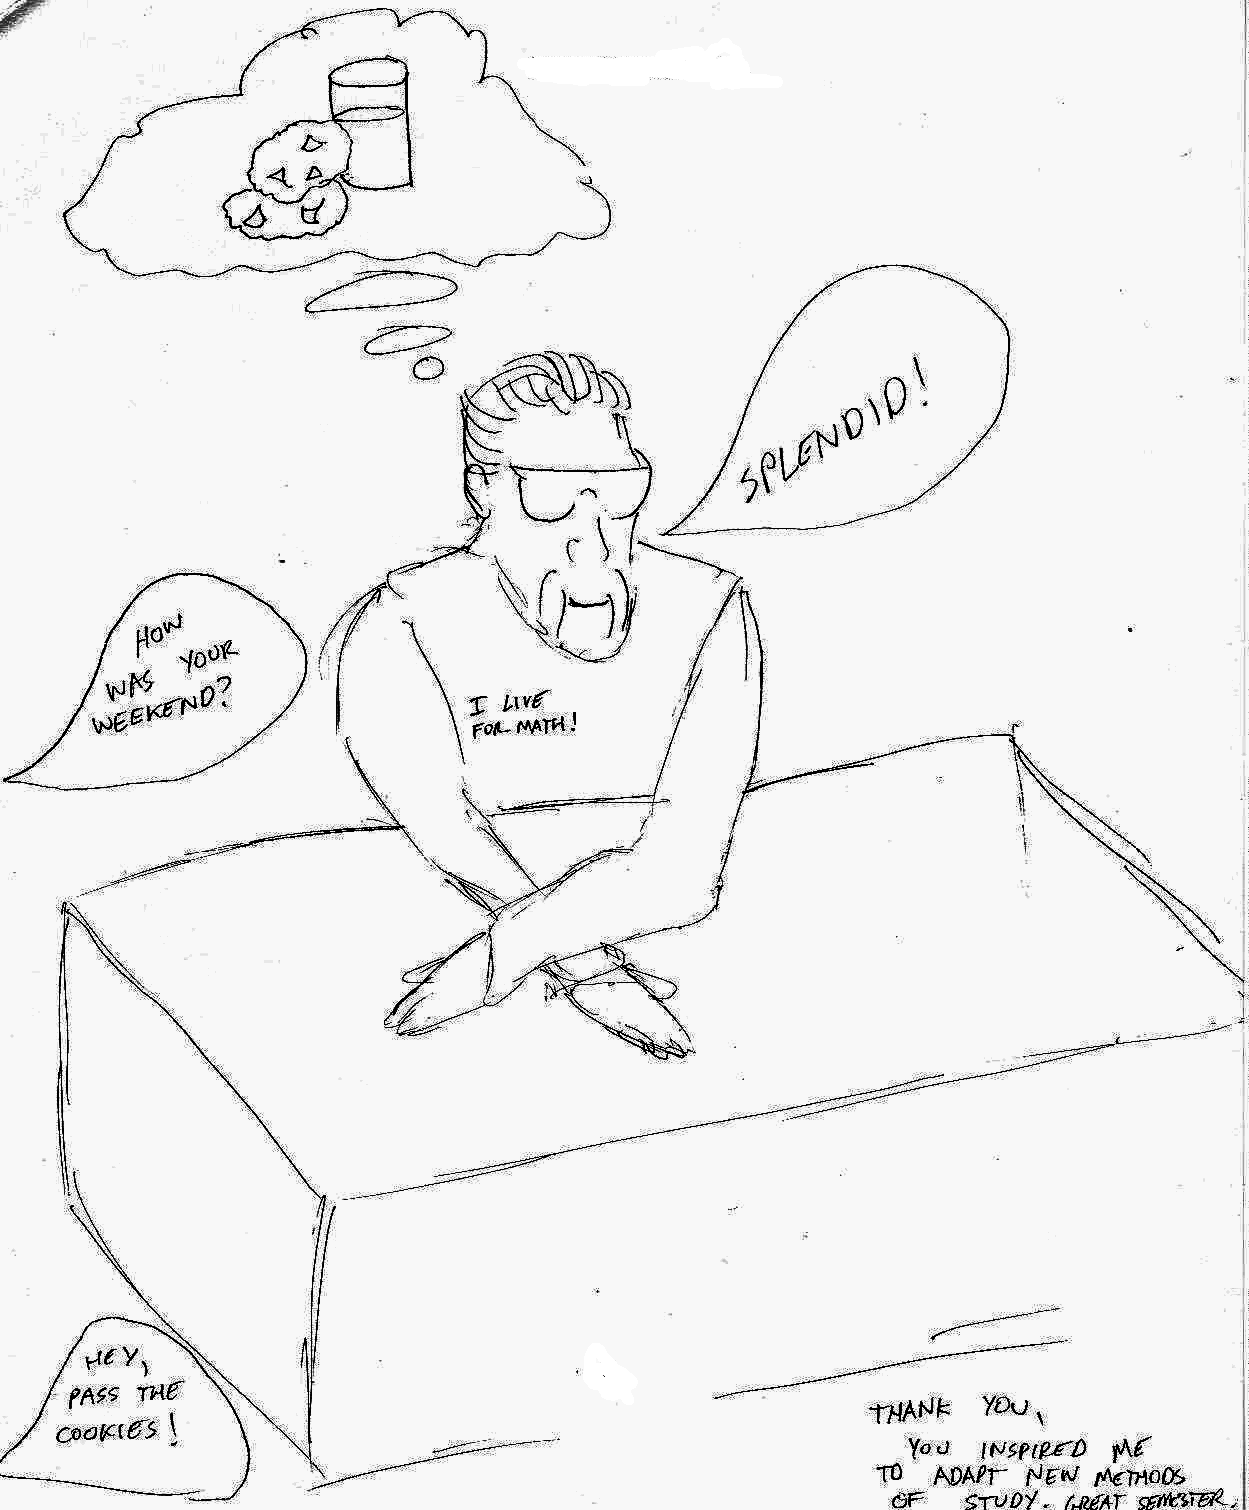 SPLENDID!
HOW
WAS YOUR
WEEKEND?
I LIVE
FOR MATH!
HEY,
PASS THE
COOKIES!
THANK YOU,
YOU INSPIRED ME
TO ADAPT NEW METHODS
OF STUDY. GREAT SEMESTER.